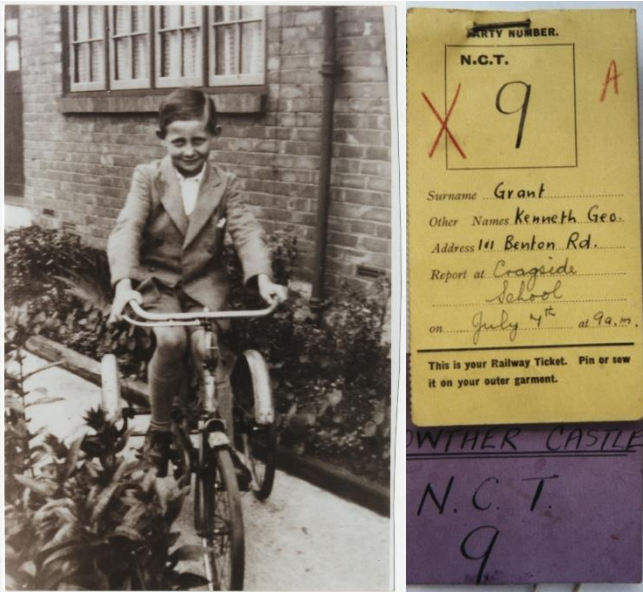 PARTY NUMBER.
N.C.T.
9
X
A
Surname Grant
Other Names Kenneth Geo.
Address 101 Benton Rd.
Report at Cragside
School
on July 7th at 9 a.m.
This is your Railway Ticket. Pin or sew
it on your outer garment.
OWTHER CASTLE
N. C. T.
9